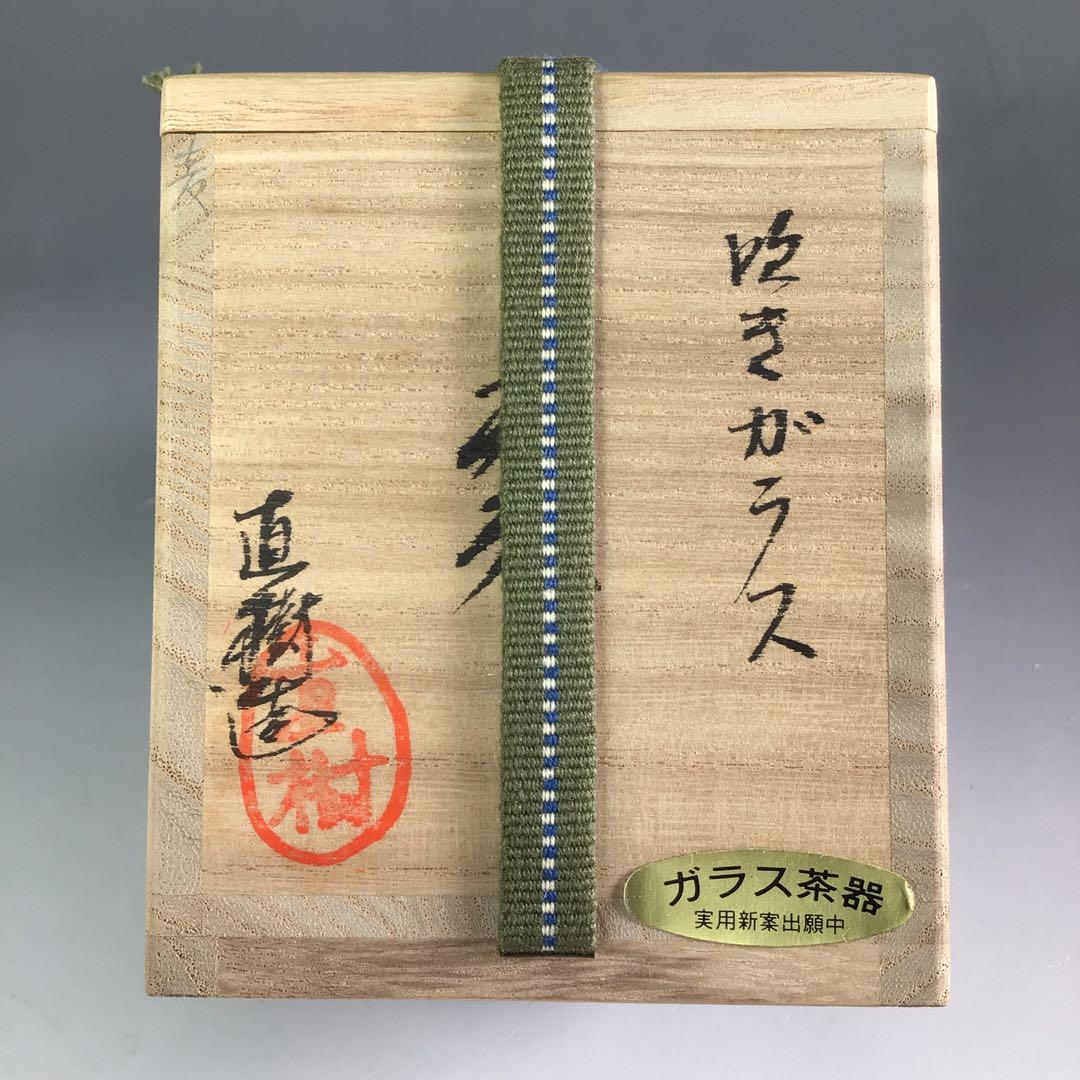 吹きがラス
直樹造
直樹
ガラス茶器
実用新案出願中